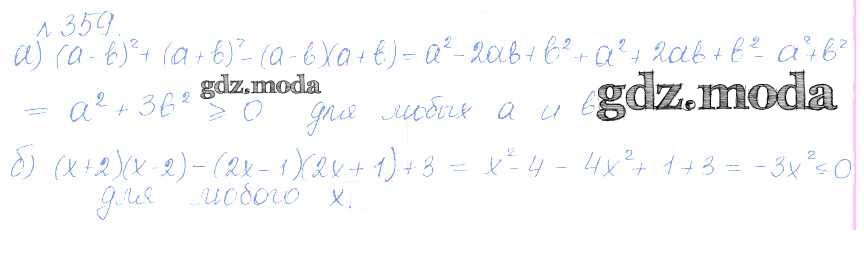 № 359.
а) (a-b)² + (a+b)² - (a-b)(a+b) = a² - 2ab + b² + a² + 2ab + b² - a² + b²
gdz.moda
= a² + 3b² ≥ 0 для любых a и b
gdz.moda
б) (x+2)(x-2) - (2x-1)(2x+1) + 3 = x² - 4 - 4x² + 1 + 3 = -3x² ≤ 0
для любого x.